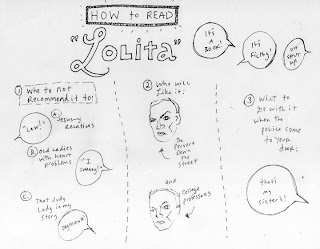 HOW to READ
"Lolita"
It's
A
BOOK.
It's
Filthy!
OH
SHUT
UP.
1 Who to not
Recommend it to:
A. Jesus-y
Relatives
B. Old Ladies
with heart
problems
"I
C. That Judy
Lady in my
story
2 Who will
like it:
The
Pervert
Down
the
street
and
College
professors
3 What to
Do with it
when the
police come
to your
door:
that's
my
sister's!